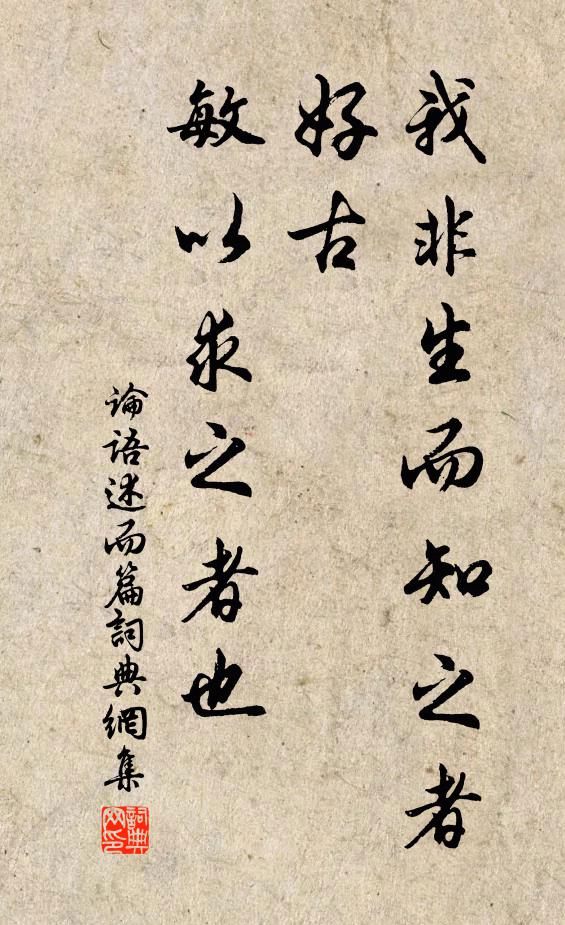 我非生而知之者
好古
敏以求之者也
论语述而篇词典網集
詞典
网印